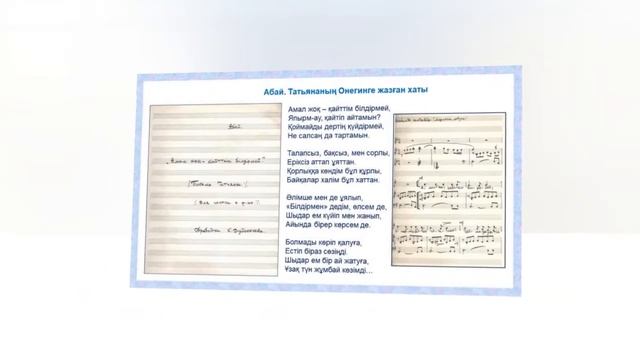 Абай. Татьянаның Онегинге жазған хаты
Абай
„Амал жоқ – қайттім білдірмей"
Амал жоқ – қайттім білдірмей,
Япырм-ау, қайтіп айтамын?
Қоймайды дертің күйдірмей,
Не салсаң да тартамын.
Талапсыз, бақсыз, мен сорлы,
Еріксіз аттап ұяттан.
Қорлыққа көндім бұл құрлы,
Байқалар халім бұл хаттан.
Өлімше мен де ұялып,
«Білдірмен» дедім, өлсем де,
Шыдар ем күйіп мен жанып,
Айында бірер көрсем де.
Болмады көріп қалуға,
Естіп біраз сөзіңді.
Шыдар ем бір ай жатуға,
Ұзақ түн жұмбай көзімді...